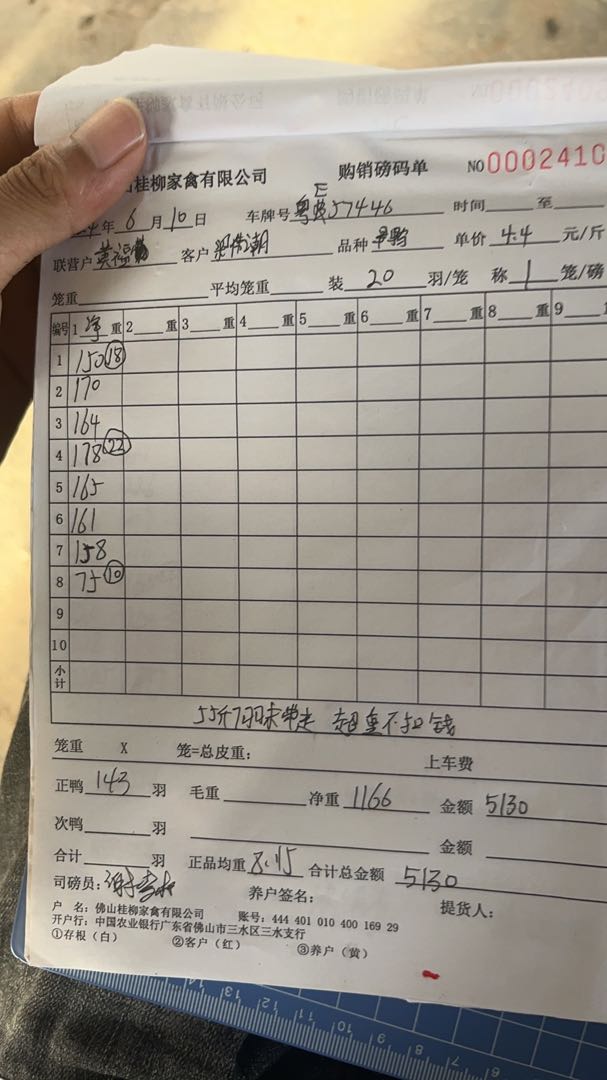 山桂柳家禽有限公司 购销磅码单 NO 0002410
24年6月10日 车牌号 粤E57446 时间 至
联营户 客户 品种 单价 4.4 元/斤
笼重 平均笼重 装 20 羽/笼 称 1 笼/磅
编号 1 净 重 2 重 3 重 4 重 5 重 6 重 7 重 8 重 9
1 150 ⑱
2 170
3 164
4 178 ㉒
5 165
6 161
7 158
8 75 ⑩
9
10
小计
55斤7羽未 超重不扣钱
笼重 X 笼=总皮重: 上车费
正鸭 143 羽 毛重 净重 1166 金额 5130
次鸭 羽 金额
合计 羽 正品均重 8.15 合计总金额 5130
司磅员: 养户签名: 提货人:
户 名: 佛山桂柳家禽有限公司 账号: 444 401 010 400 169 29
开户行: 中国农业银行广东省佛山市三水区三水支行
①存根(白) ②客户(红) ③养户(黄)